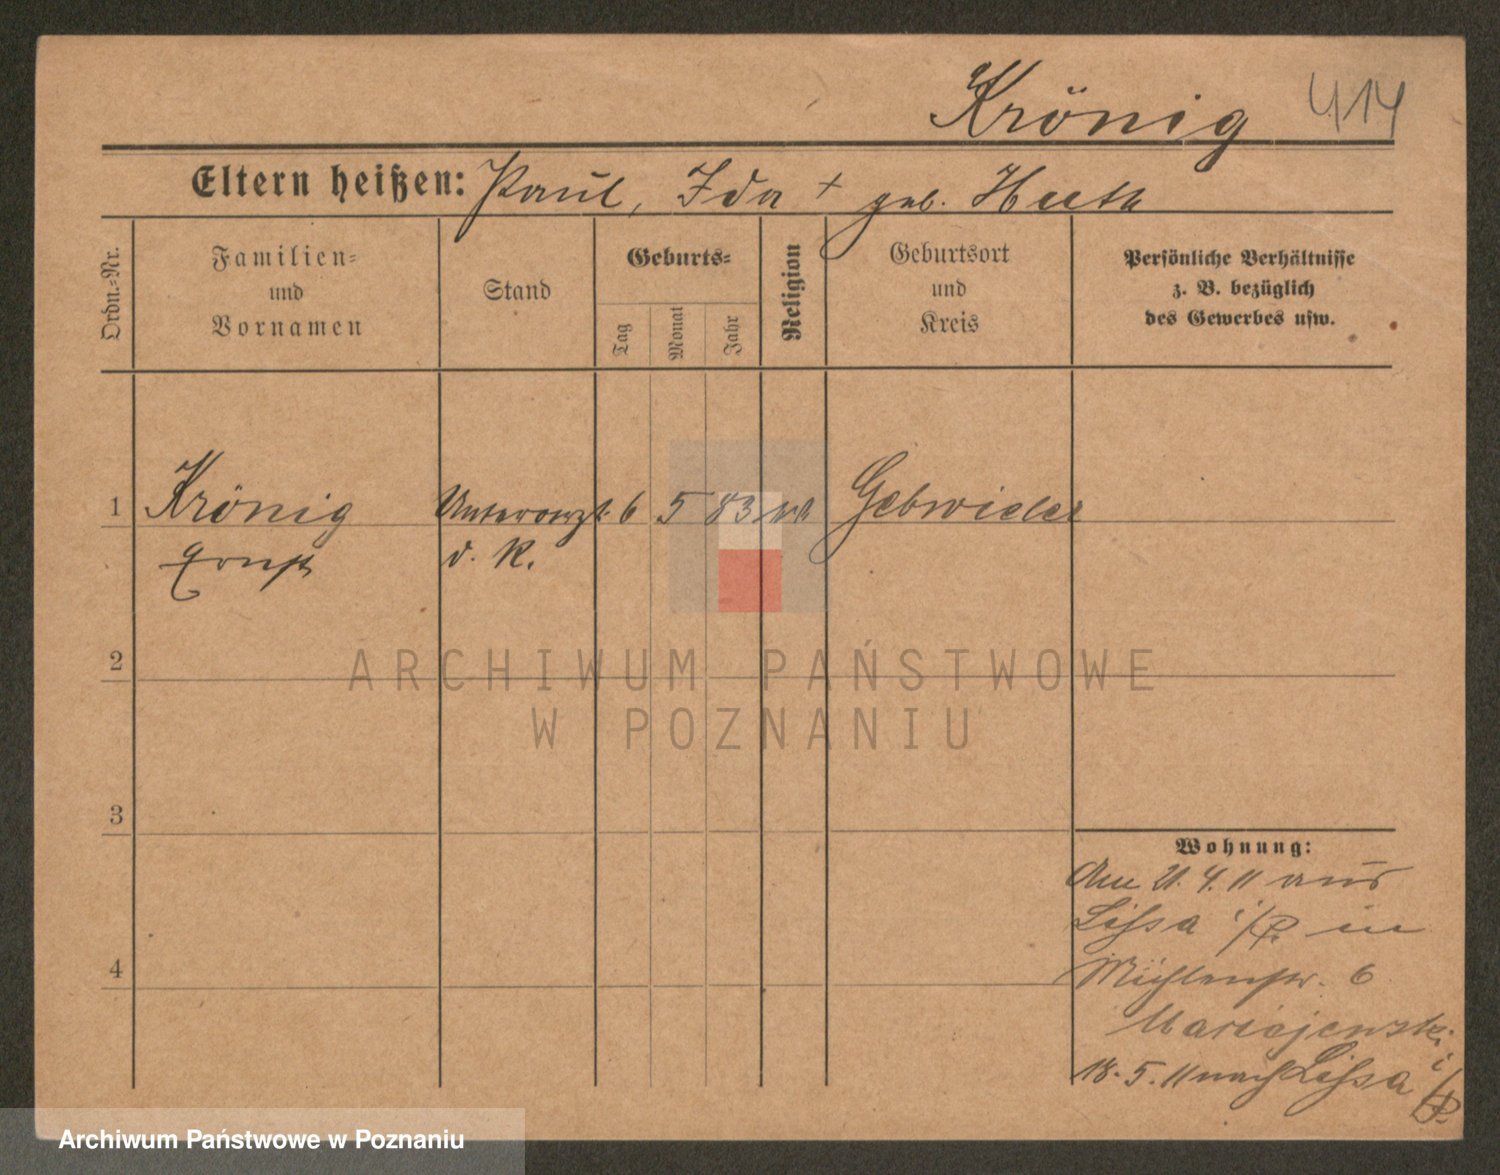 Krönig 414
Eltern heißen: Paul, Ida + geb. Huth
Ordn.-Nr.
Familien-
und
Vornamen
Stand
Geburts-
Tag
Monat
Jahr
Religion
Geburtsort
und
Kreis
Persönliche Verhältnisse
z. B. bezüglich
des Gewerbes usw.
1 Krönig Unterarzt 6 5 83 Gebwieler
Ernst d. R.
2
ARCHIWUM PAŃSTWOWE
W POZNANIU
3
Wohnung:
Am 21.4.11 aus
Lissa i/P. in
4
Mühlenstr. 6
18.5.11 nach Lissa i/P.
Archiwum Państwowe w Poznaniu